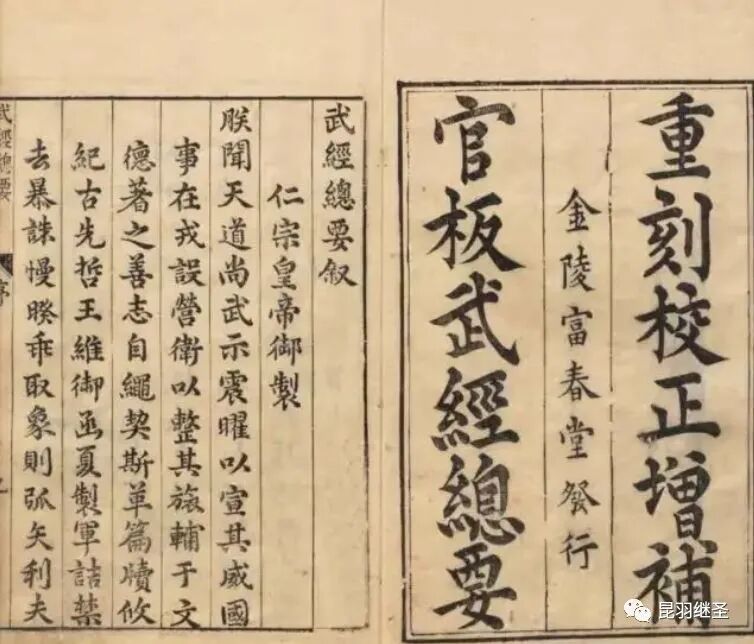 重刻校正增補
金陵富春堂發行
官板武經總要
武經總要叙
仁宗皇帝御製
朕聞天道尚武示震曜以宣其威國
事在戎設營衛以整其旅輔于文
德著之善志自繩契斯革篇牘攸
紀古先哲王維御函夏製軍詰禁
去暴誅慢睽乖取象則弧矢利夫
武經總要
序
昆羽继圣